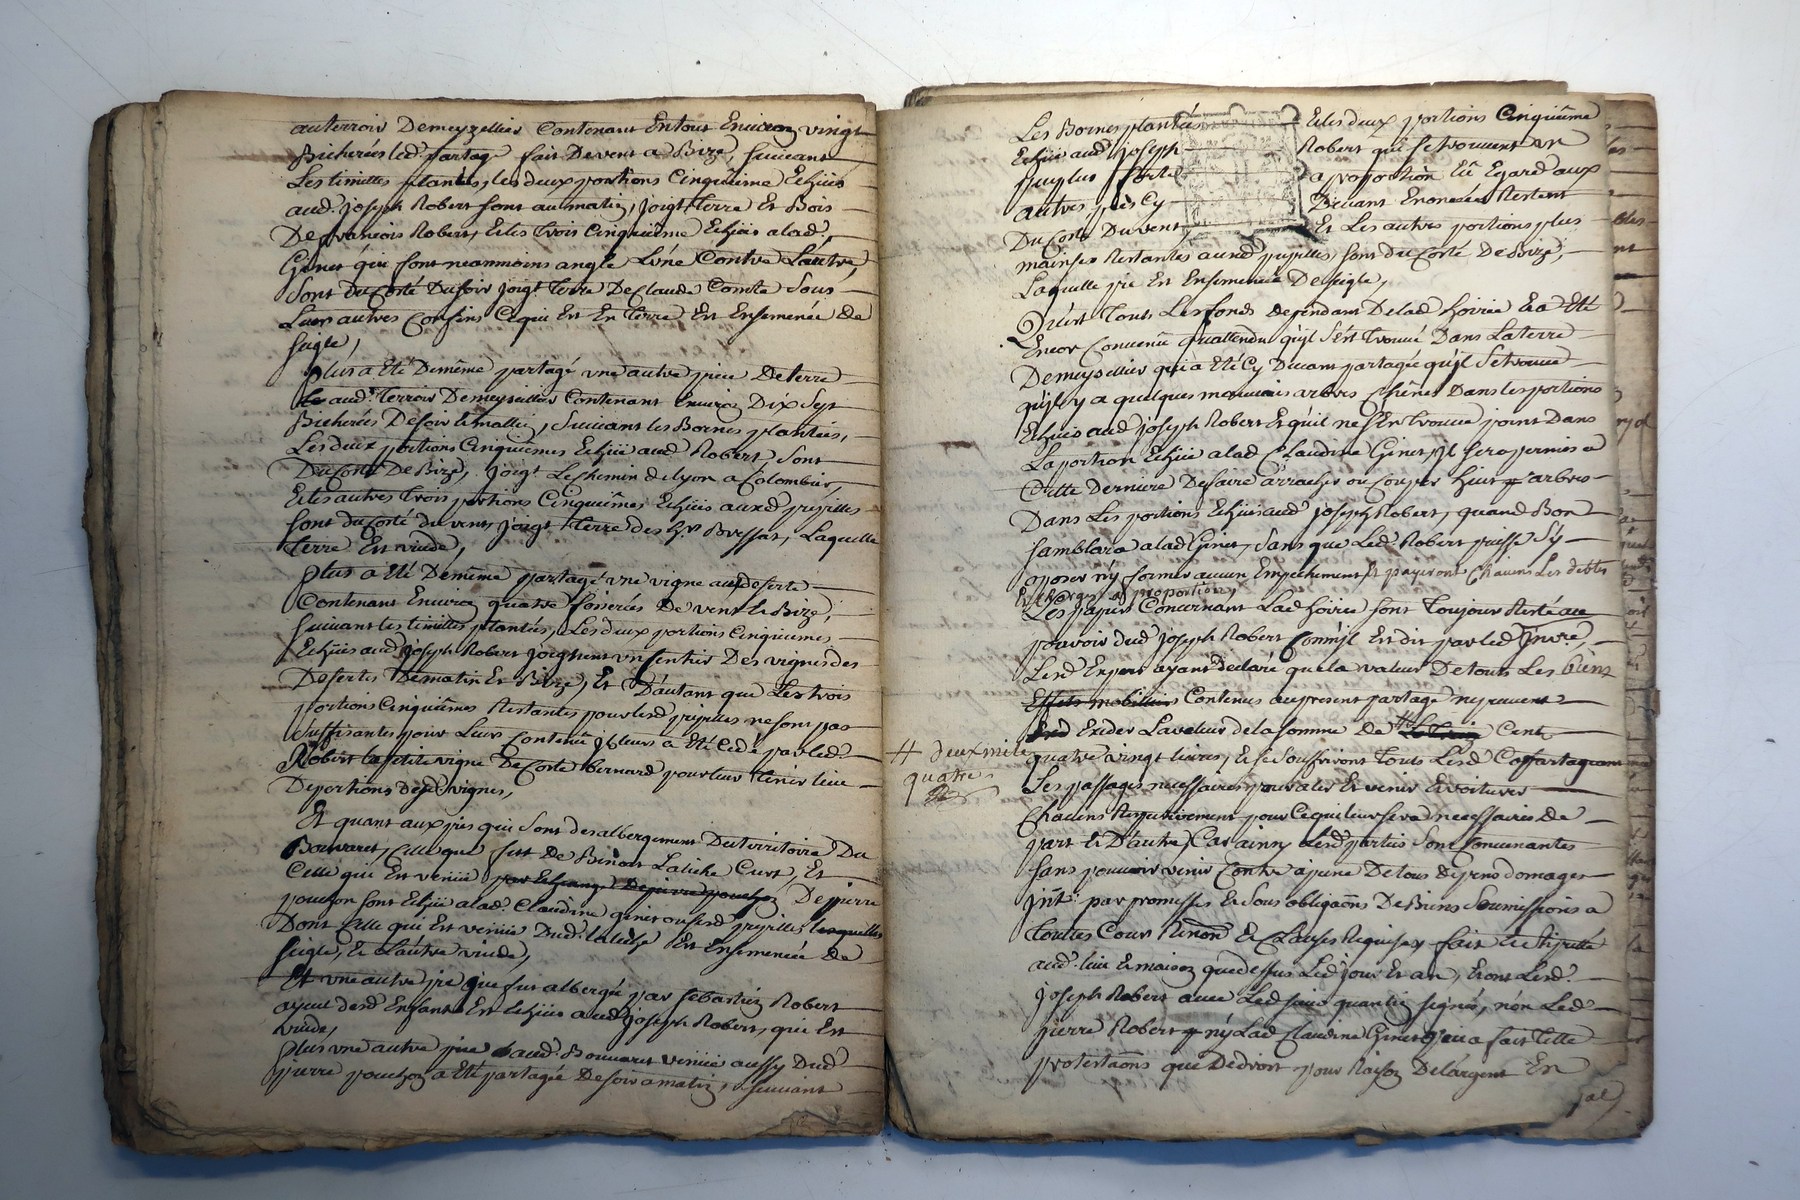 auterroir Demeyzellier Contenant Entout Environ vingt
Bicherées led. partage fait Devent a Bize, suivant
Les limittes plantés, les deux portions Cinquième Echües
aud. joseph Robert sont au matin, joigt. terre Et Bois
De francois Robert, Et les trois Cinquieme Echües a lad.
Ginet qui sont neanmoins angle L'une Contre L'autre,
sont du Corté Du soir joigt. terre De Claude Comte sous
Leurs autres Confins Ce qui Est En terre Est Ensemencée de
segle,
Plus a Eté Demême partagé une autre piece De terre
aud. terroir Demeyzellier Contenant Environ Dix Sept
Bicherées De soir a mattin, suivant les Bornes plantées,
Les deux portions Cinquiemes Echües aud. Robert sont
Du Corté De Bize, joigt. Le chemin de lyon a Colombier,
Et les autres trois portions Cinquièmes Echües auxd. pupilles
sont du Corté du vent, joigt. terre des Laquelle
terre Est vuide,
Plus a Eté Demême partagé une vigne
Contenant Environ quatre fosserées De vent a Bize,
suivant les limittes plantés, Les deux portions Cinquiemes
Echües aud. joseph Robert joignent un sentier Des vignes des
Desertes De matin Et Bize, Et D'autant que Les trois
portions Cinquiêmes Restantes pour lesd. pupilles ne sont pas
suffisantes pour Leur Contenu il leurs a Eté Cedé par led.
Robert la petite vigne De Corte bernard pour leur tenir lieu
De portions desd. vignes,
Et quant aux pies qui sont des albergement Du territoire Du
Bouvaret, Celle que fut De Binoit Latiche Curt, Et
Celle qui Est venüe par Echange De pierre pouchon De pierre
pouchon sont Echüe a lad. Claudine ginet ou sesd. pupilles lesquelles
Dont Celle qui Est venüe Dud. latiche Est Ensemencée de
seigle, Et L'autre vuide,
Et une autre pie que fut albergé par sebastien Robert
ayeul desd. Enfants Est Echüe aud. joseph Robert, qui Est
vuide,
Plus une autre pie aud. Bouvaret venüe aussy Dud.
pierre pouchon a Eté partagée De soir a matin, suivant
Les Bornes plantées Et les deux portions Cinquiême
Echüe aud. joseph Robert qui se trouvent un
peu plus forte a proportion Eû Egard aux
autres pies Cy Devant Enoncées Restent
Du Corté Du vent, Et Les autres portions plus
mainses Restantes auxd. pupilles, sont du Corté De Bize,
Laquelle pie Est Ensemencée De seigle,
Qu'est touts Les fonds dependant De lad. hoirie Et a Eté
Encor Convenû qu'attendu qu'il s'est trouvé Dans La terre
Demeyzellier qui a Eté Cy Devant partagée qu'il se trouve
qu'il y a quelques mauvais arbres Chênes Dans les portions
Echües aud. joseph Robert Et qu'il ne s'En trouve point Dans
La portion Echüe a lad. Claudine Ginet, il sera permis a
Cette Derniere De faire arracher ou Couper huit arbres
Dans Les portions Echües aud. joseph Robert, quand Bon
semblera a lad. Ginet, sans que Led. Robert puisse s'y
oposer n'y former aucun Empechement Et payeront Chacuns Les debtes
Et charges a proportion
Les papiers Concernant Lad. hoirie sont toujours Resté au
pouvoir dud. joseph Robert Comm'il Est dit par led.
Lesd. Expert ayant declaré que la valeur De touts Les biens
Effets mobilliers Contenus au present partage ne peuvent
Exider La valeur de la somme De Cent
# deux mile
quatre
quatre vingt livres, Et se souffriront touts Lesd. Copartageant
Les passages necessaires pour aler Et venir Et voiturer
Chacuns Respectivement pour Ce qui leur sera necessaire de
part Et D'autre, Car ainsy Lesd. parties sont Convenantes
sans pouvoir venir Contre a peine De tous depens domages
int. par promesses Et sous obligaõns De Biens soumissions a
toutes Cours Renõn Et Clauses Requises fait Et stipulé
aud. lieu Et maison que dessus Led. jour Et an, Et ont Lesd.
joseph Robert avec Led. sieur quantin signés, non Led.
pierre Robert ny Lad. Claudine Ginet qui a fait telle
protestaõns que De droit pour Raison De L'argent En